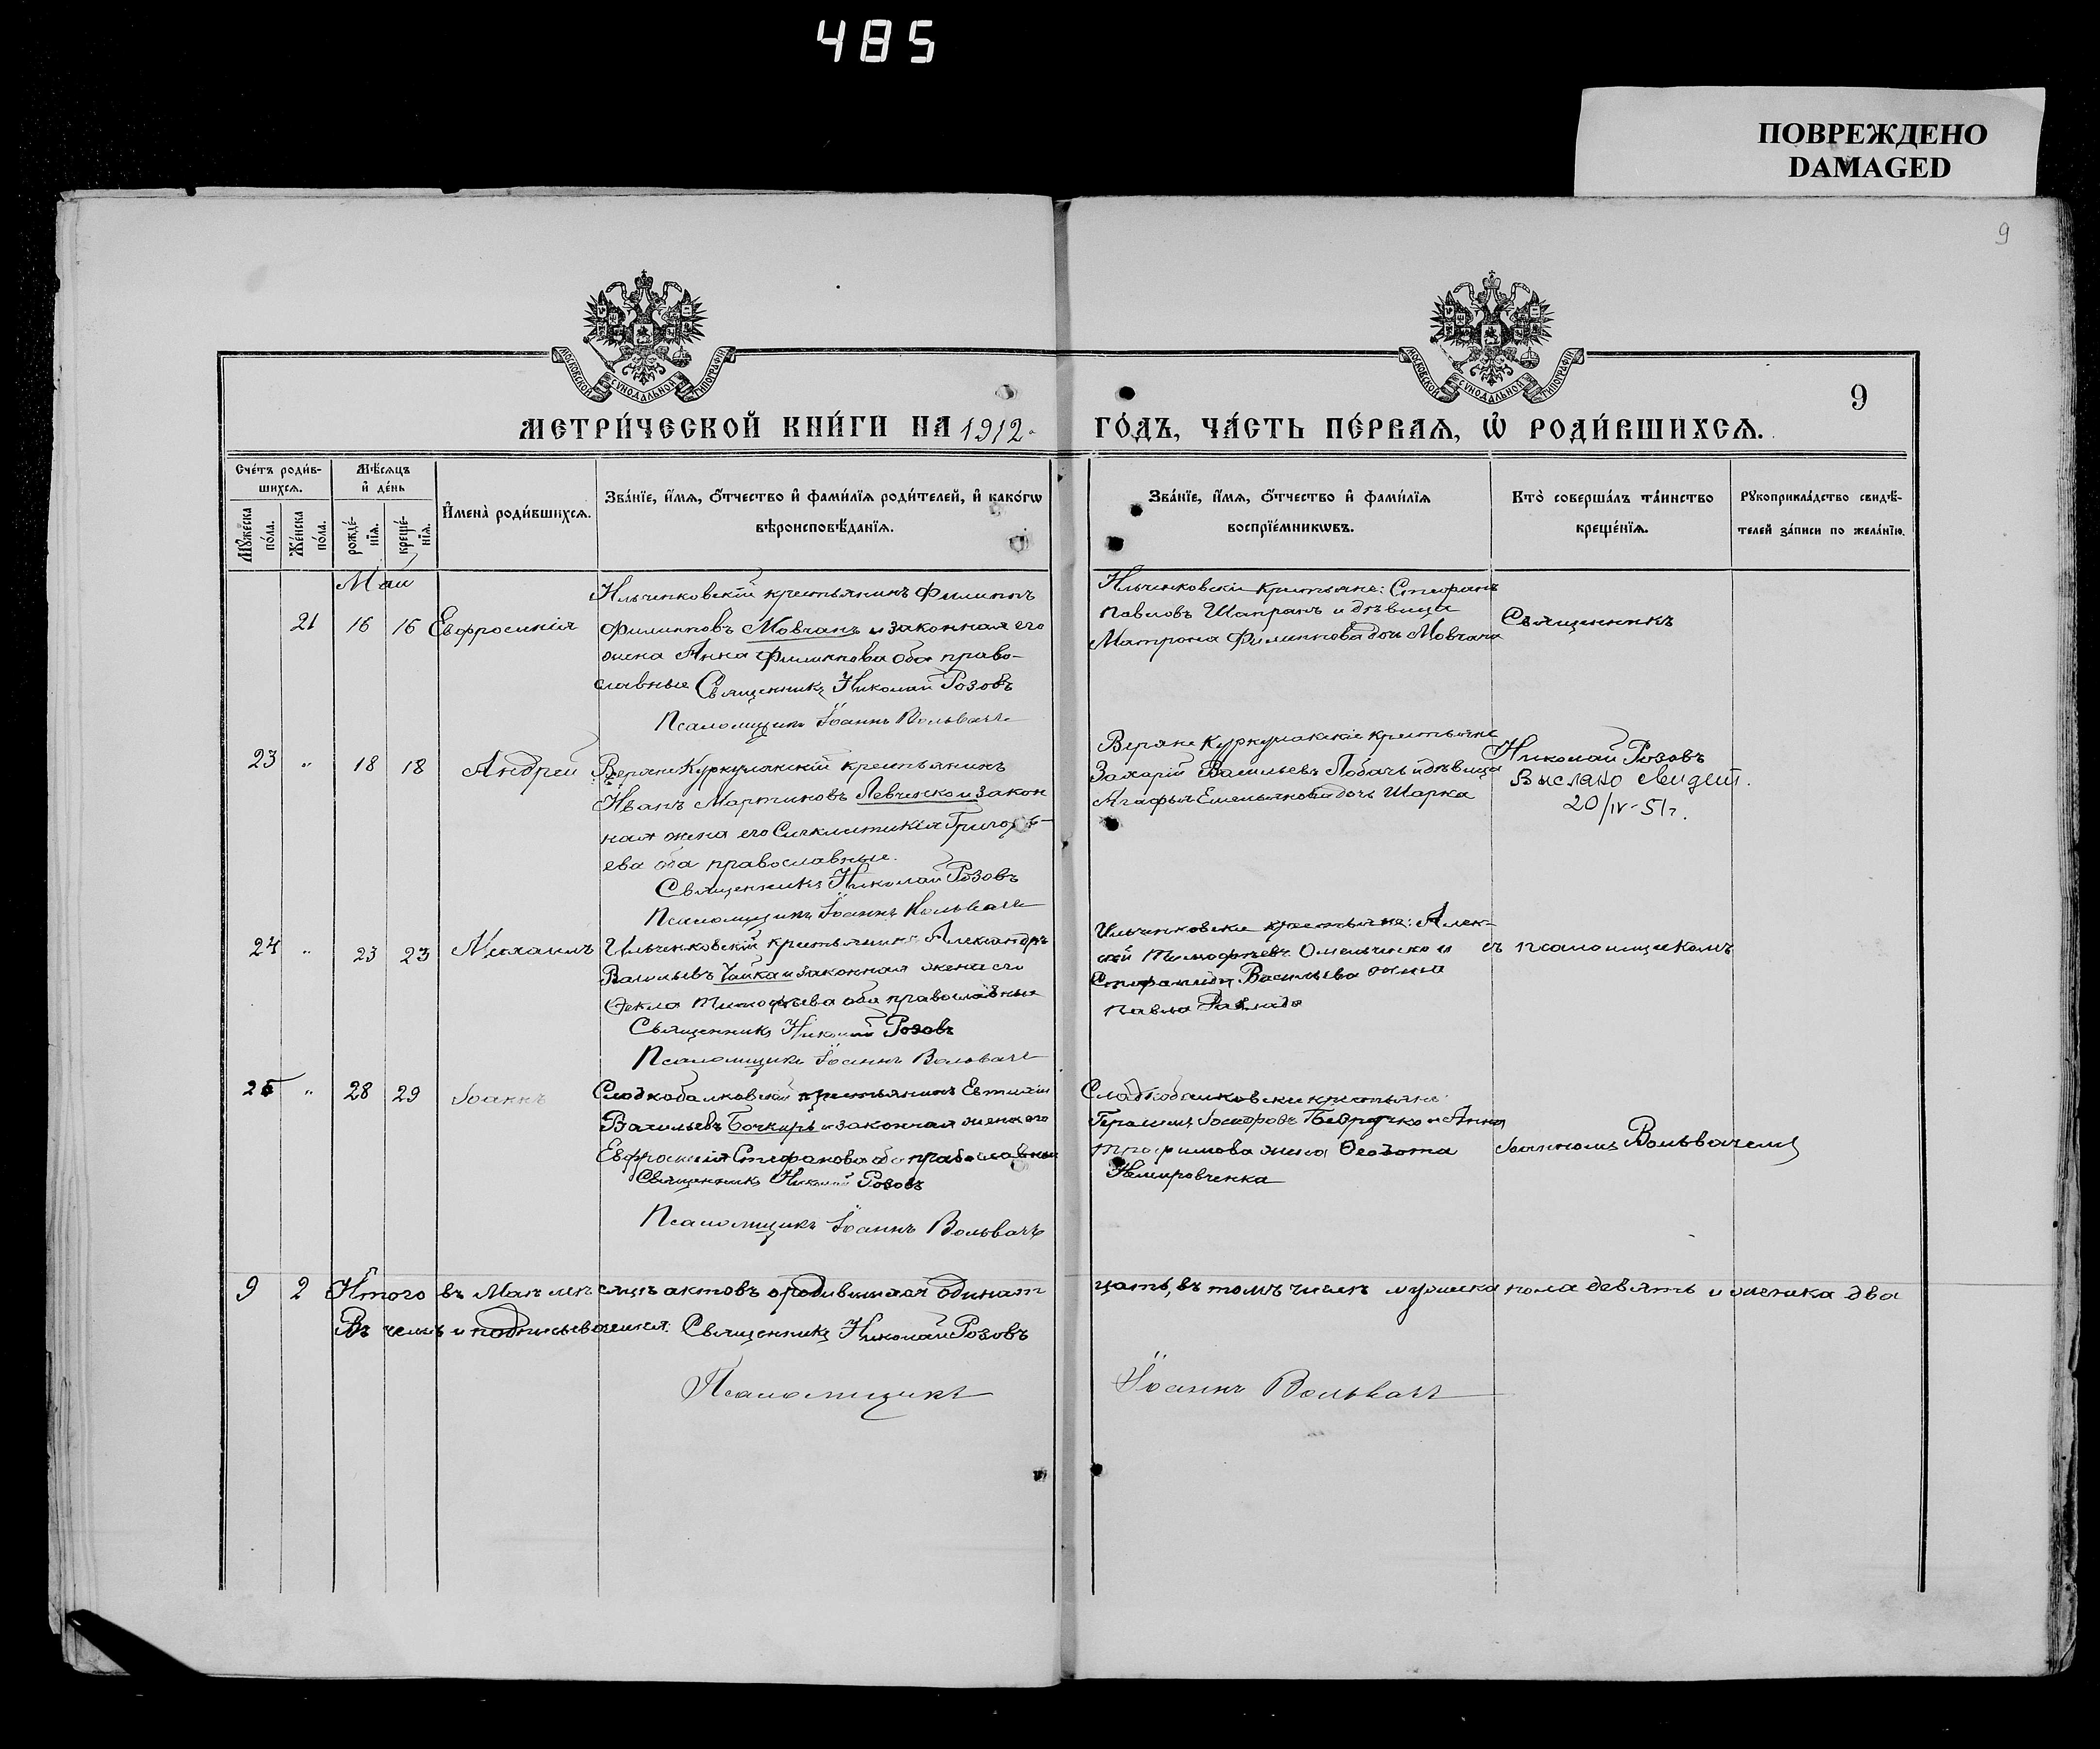 485
ПОВРЕЖДЕНО
DAMAGED
9
МОСКОВСКОЙ СУНОДАЛЬНОЙ ТИПОГРАФІИ
МОСКОВСКОЙ СУНОДАЛЬНОЙ ТИПОГРАФІИ
9
МЕТРИ́ЧЕСКОЙ КНИ́ГИ НА 1912 ГО́ДЪ, ЧА́СТЬ ПЕ́РВАѦ, Ѡ РОДИ́ВШИХСѦ.
Сче́тъ роди́в-
шихсѧ.
Мѣ́сѧцъ
и҆ де́нь
Мꙋ́жеска по́ла.
Же́нска по́ла.
рожде́-
нїѧ.
креще́-
нїѧ.
И҆мена̀ роди́вшихсѧ.
Зва́нїе, и҆́мѧ, ѻ҆́тчество и҆ фами́лїѧ роди́телей, и҆ како́гѡ
вѣроисповѣ́данїѧ.
Зва́нїе, и҆́мѧ, ѻ҆́тчество и҆ фами́лїѧ
воспрїе́мникѡвъ.
Кто̀ соверша́лъ та́инство
креще́нїѧ.
Рꙋкоприкла́дство свидѣ́-
телей за́писи по жела́нїю.
Май
21 16 16 Евфросинія
Ильченковскій крестьянинъ Филиппъ
Филипповъ Мовчанъ и законная его
жена Анна Филиппова оба право-
славные Священникъ Николай Розовъ
Псаломщикъ Іоаннъ Вольвачъ
Ильченковскіе крестьяне: Стефанъ
Павловъ Шапранъ и дѣвица
Матрона Филиппова дочь Мовчана
Священникъ
23 „ 18 18 Андрей
Веряне Куркулакскій крестьянинъ
Иванъ Мартиновъ Левченко и закон
ная жена его Сигклитикія Григорь-
ева оба православные.
Священникъ Николай Розовъ
Псаломщикъ Іоаннъ Вольвачъ
Веряне Куркулакскіе крестьяне
Захарій Васильевъ Лобачь и дѣвица
Агафья Емельянова дочь Шарка
Николай Розовъ
Выслано свидет.
20/IV-51г.
24 „ 23 23 Михаилъ
Ильченковскій крестьянинъ Александръ
Васильевъ Чайка и законная жена его
Ѳекла Тимофѣева оба православные
Священникъ Николай Розовъ
Псаломщикъ Іоаннъ Вольвачъ
Ильченковскіе крестьяне: Алек-
сѣй Тимофѣевъ Омельченко и
Стефанида Васильева жена
Павла
съ псаломщикомъ
25 „ 28 29 Іоаннъ
Сладкобалковскій крестьянинъ Евтихій
Васильевъ Бочкарь и законная жена его
Евфросинія Стефанова оба православные
Священникъ Николай Розовъ
Псаломщикъ Іоаннъ Вольвачъ
Сладкобалковскіе крестьяне:
и Анна
Трофимова жена Ѳеодота
Немировченка
Іоанномъ Вольвачемъ
9 2 Итого въ Маѣ мѣсяцѣ актовъ о родившихся одинат
цать, въ томъ числѣ мужеска пола девять и женска два
Въ чемъ и подписываемся: Священникъ Николай Розовъ
Псаломщикъ Іоаннъ Вольвачъ